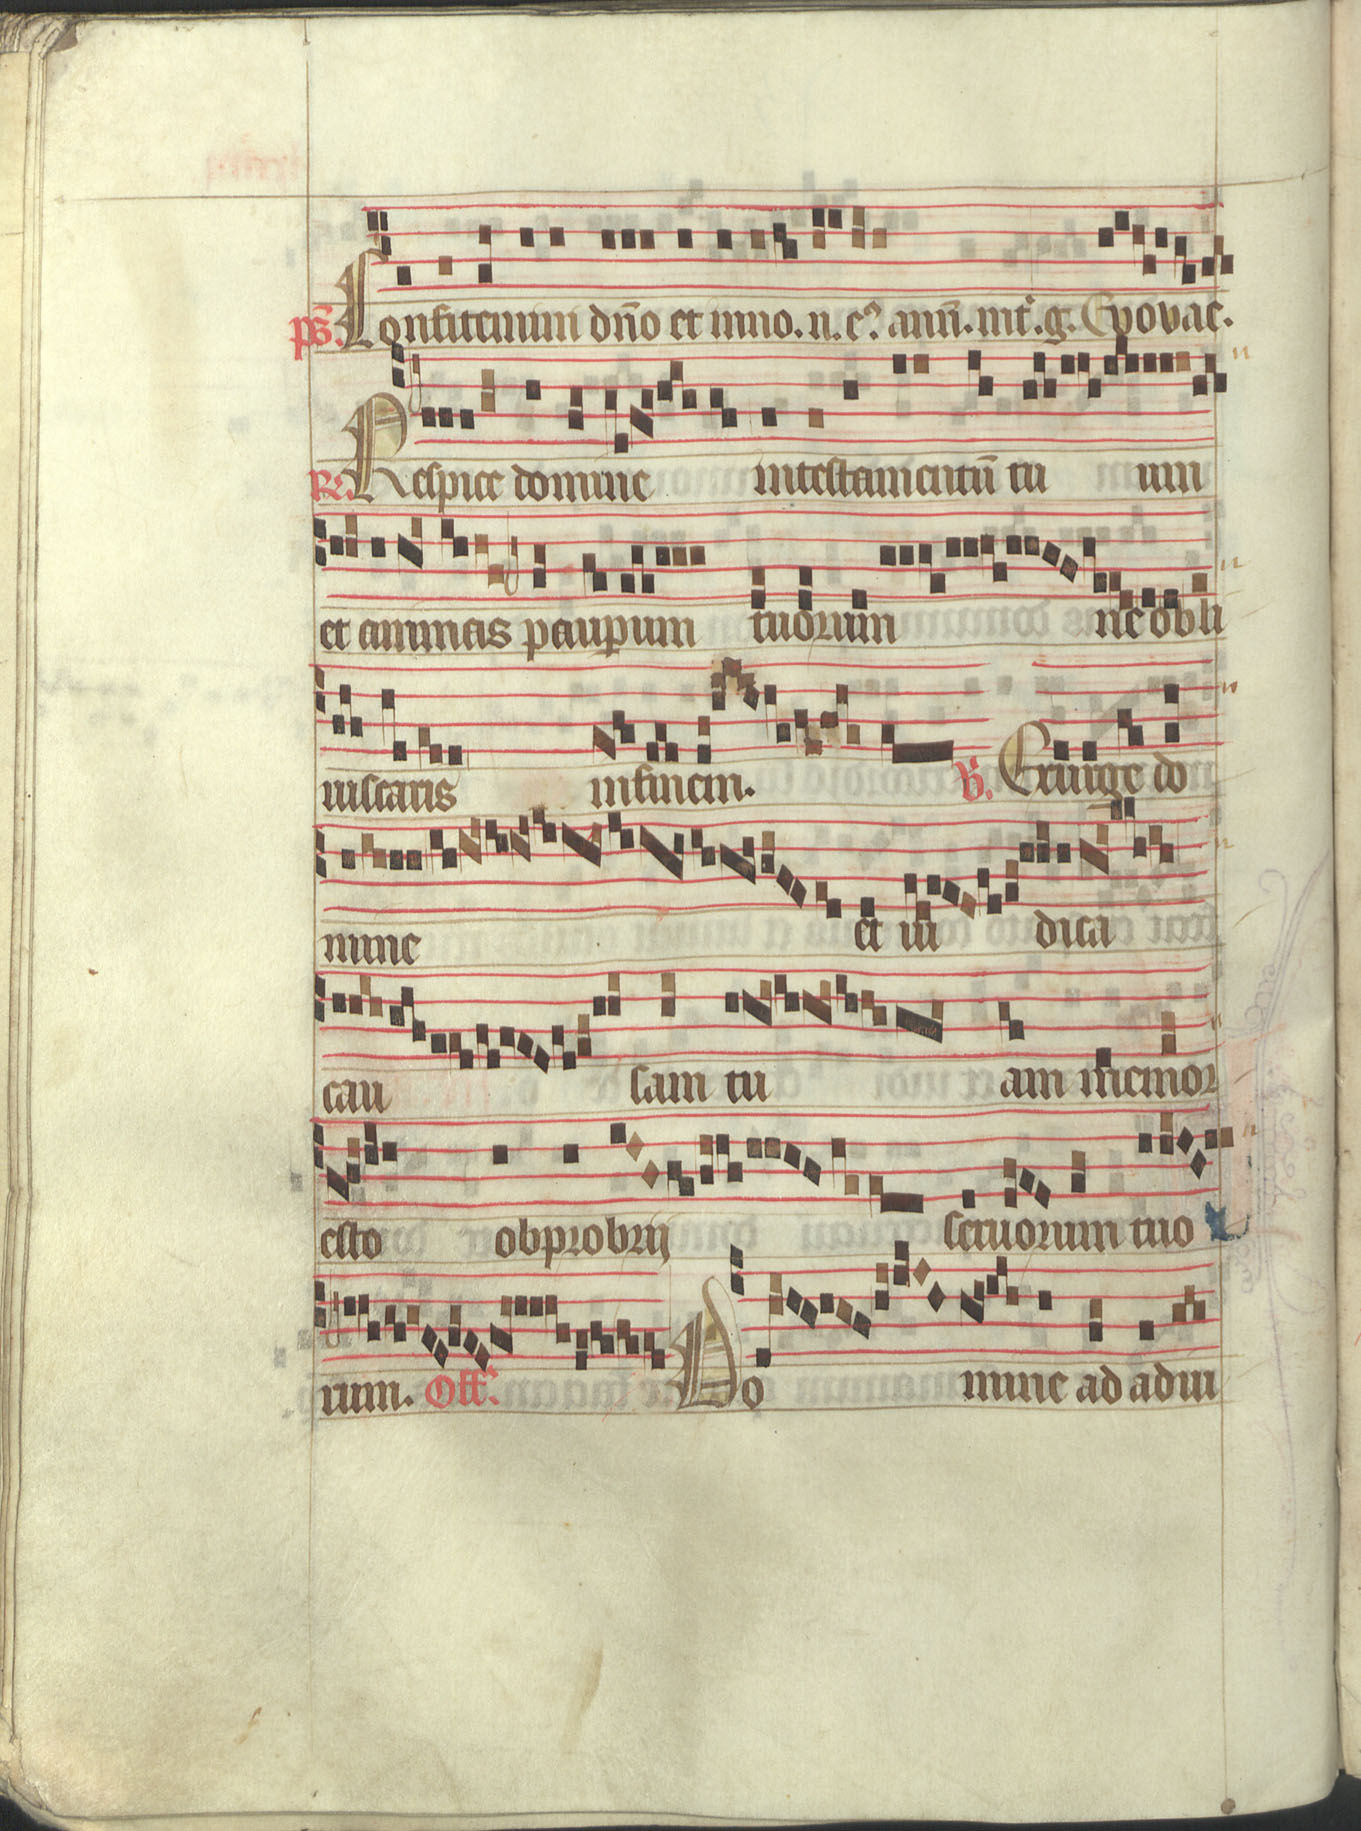 ps. Confitemini dño et inuo. n. eꝰ annũ. int̉. g. Evovae.
R. Respice domine intestamentũ tu um
et animas pauꝑum tuorum ne obli
uiscaris infinem. V. Exurge do
mine et iu dica
cau sam tu am memor
esto obprobrij seruorum tuo
rum. Off. Do mine ad adiu